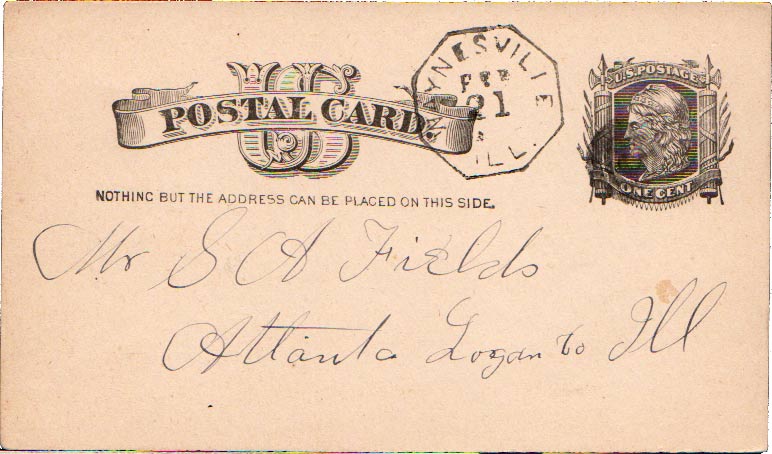 US
POSTAL CARD.
WAYNESVILLE
FEB
21
ILL.
U.S. POSTAGE
ONE CENT
NOTHING BUT THE ADDRESS CAN BE PLACED ON THIS SIDE.
Mr S A Fields
Atlanta Logan Co Ill